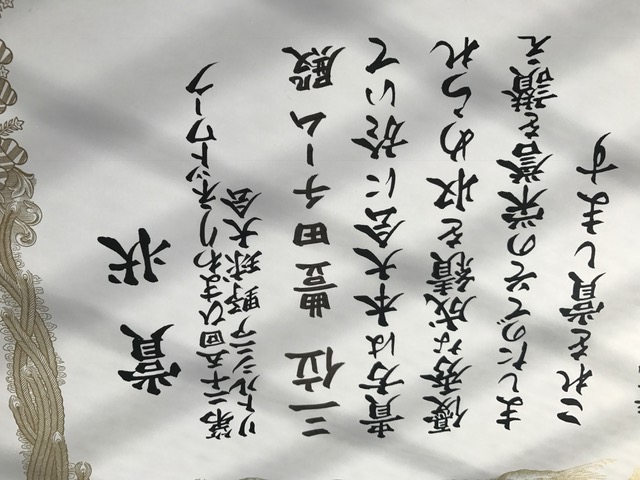 賞状
第二十五回ひまわりネットワーク
リトルシニア野球大会
三位 豊田チーム 殿
貴方は本大会に於いて
優秀な成績を収められ
ましたのでその栄誉を讃え
これを賞します